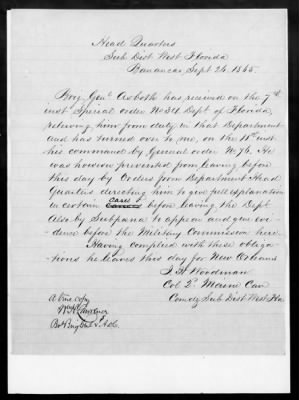 Head Quarters
Sub Dist West Florida
Barancas Sept 24. 1865.
Brig Genl Asboth has received on the 7th
inst Special order No 34 Dept of Florida,
relieving him from duty in that Department
and has turned over to me, on the 14th inst
his command by General order No 76. He
was however prevented from leaving before
this day by Orders from Department Head
Quarters directing him to give full explanation
in certain cases before leaving the Dept
Also by Subpana to appear and give evi-
dence before the Military Commission here.
Having complied with these obliga-
tions he leaves this day for New Orleans
Woodman
Col 2d Maine Cav
Comdg Sub Dist West Fla
A true copy